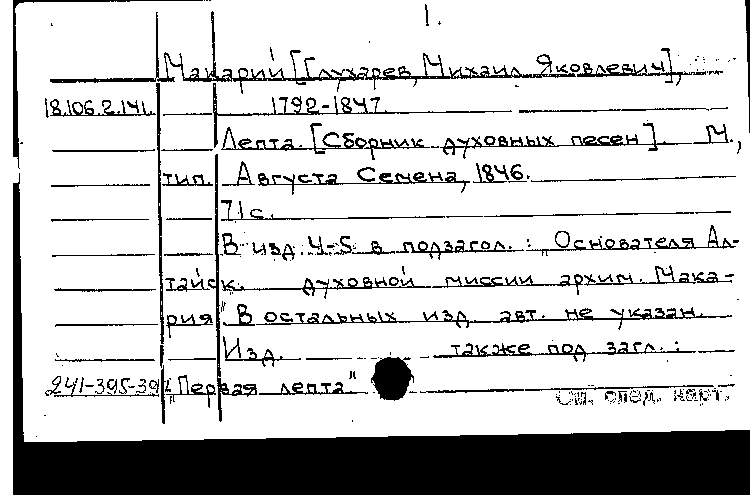 1.
Макарий [Глухарев, Михаил Яковлевич],
18.106.2.141. 1792-1847.
Лепта. [Сборник духовных песен]. М.,
тип. Августа Семена, 1846.
71 с.
В изд. 4-5 в подзагол.: „Основателя Ал-
тайск. духовной миссии архим. Мака-
рия". В остальных изд. авт. не указан.
Изд. также под загл.:
241-395-39 „Первая лепта"
См. след. карт.